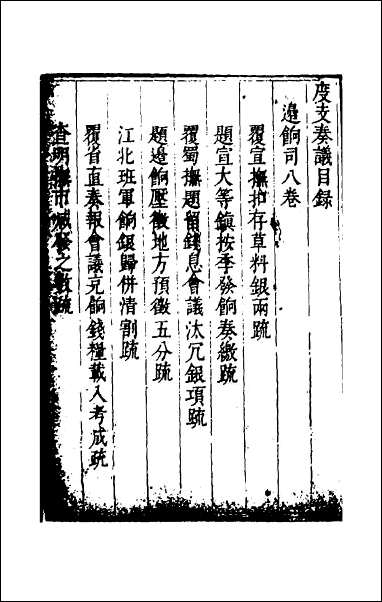 度支奏議目録
邊餉司八卷
覆宣撫扣存草料銀兩疏
題宣大等鎮按季發餉奏繳疏
覆蜀撫題留錢息會議汰冗銀項疏
題邊餉壓徵地方預徵五分疏
江北班軍餉銀歸併清割疏
覆省直奏報會議充餉錢糧載入考成疏
查明撫市之數疏